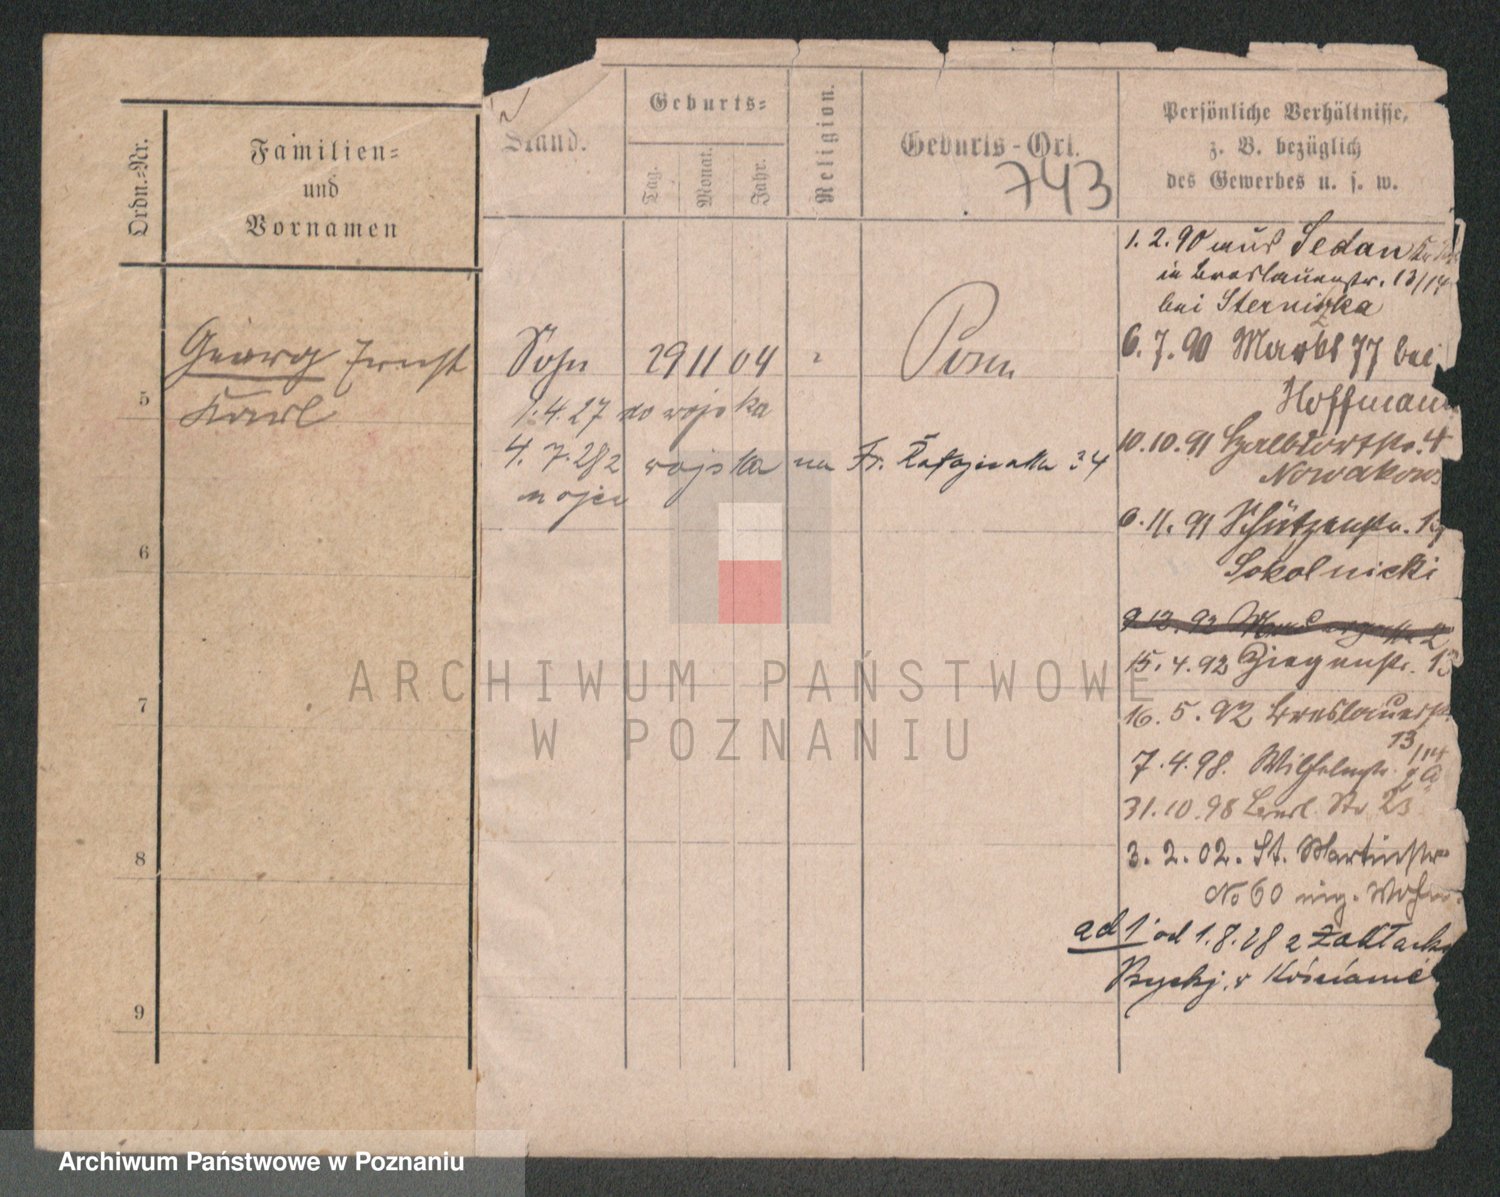 Ordn.-Nr.
Familien-
und
Vornamen
Stand.
Geburts-
Tag.
Monat.
Jahr.
Religion.
Geburts-Ort.
743
Persönliche Verhältnisse,
z. B. bezüglich
des Gewerbes u. s. w.
5
Georg Ernst
Karl
Sohn
29 11 04
Posen
1.4.27 do wojska
4. 7. 28 z wojska na Fr. Ratajczaka 34
6
7
8
9
1.2.90 aus Sedan
in Breslauerstr. 13/14
bei Sternitzka
6.7.90 Markt 77 bei
Hoffmann
10.10.91 4
Nowakows
6.11.91 Schützenstr. 19
Sokolnicki
15.4.92 Ziegenstr. 13
16.5.92 Breslauerstr.
13/14
7.4.98. Wilhelmstr.
31.10.98 Berl. Str 23
3.2.02. St. Martinstr
No 60
ad 1 od 1.8.28 z Zakład
Psychj. w Kościanie
ARCHIWUM PAŃSTWOWE
W POZNANIU
Archiwum Państwowe w Poznaniu